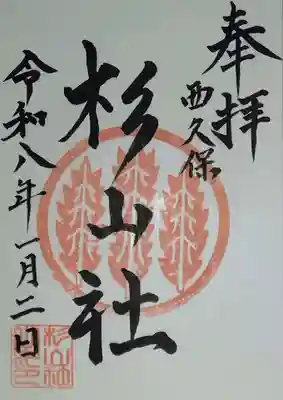 奉拝
西久保
杉山社
令和八年一月二日